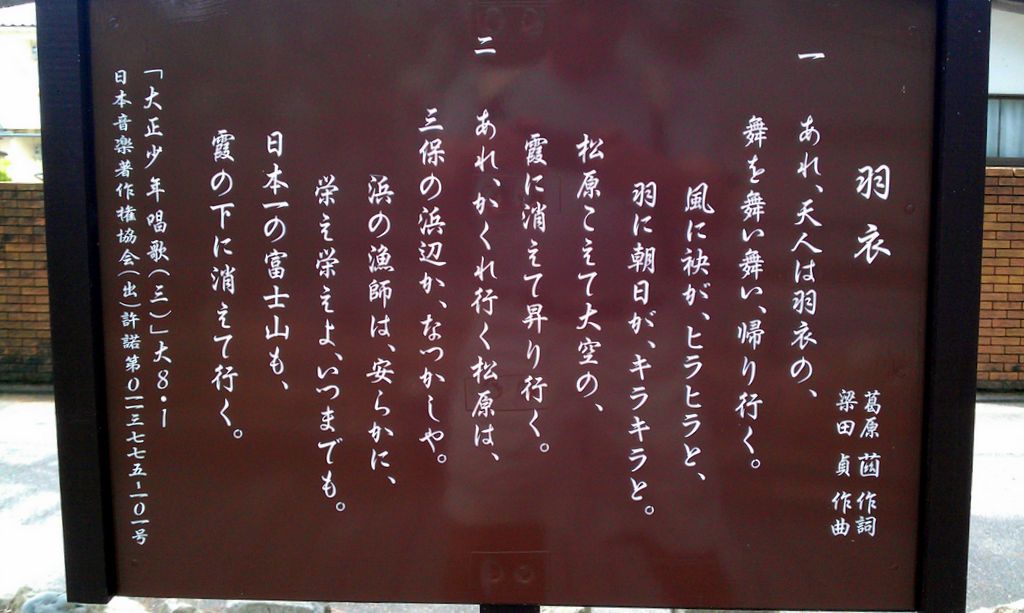 羽衣
葛原 𦰩 作詞
梁田 貞 作曲
一 あれ、天人は羽衣の、
舞を舞い舞い、帰り行く。
風に袂が、ヒラヒラと、
羽に朝日が、キラキラと。
松原こえて大空の、
霞に消えて昇り行く。
二 あれ、かくれ行く松原は、
三保の浜辺か、なつかしや。
浜の漁師は、安らかに、
栄え栄えよ、いつまでも。
日本一の富士山も、
霞の下に消えて行く。
「大正少年唱歌(三)」大8・1
日本音楽著作権協会(出)許諾第0113775-101号